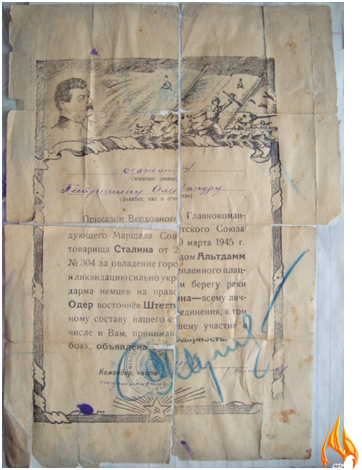 (воинское звание)
(фамилия, имя и отчество)
Приказом Верховного Главнокоман-
дующего Маршала Советского Союза
товарища Сталина от 20 марта 1945 г.
№ 304 за овладение городом Альтдамм
и ликвидацию сильно укрепленного плац-
дарма немцев на правом берегу реки
Одер восточнее Штеттина—всему лич-
ному составу нашего соединения, в том
числе и Вам, принимавшему участие в
боях, объявлена благодарность.
Командир части